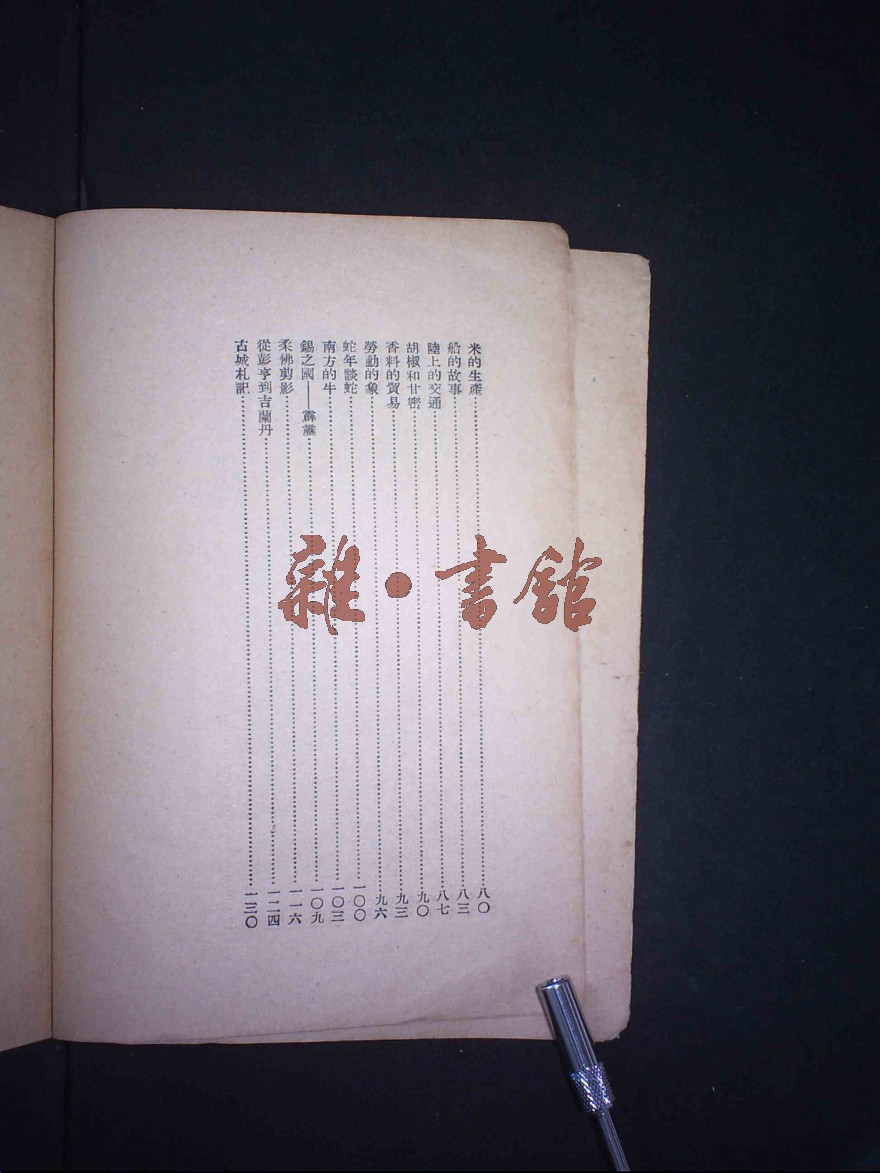 米的生產……八〇
船的故事……八三
陸上的交通……八七
胡椒和甘密……九〇
香料的貿易……九三
勞動的象……九六
蛇年談蛇……一〇〇
南方的牛……一〇三
錫之國——霹靂……一〇九
柔佛剪影……一一六
從彭亨到吉蘭丹……一二四
古城札記……一三〇
雜·書館